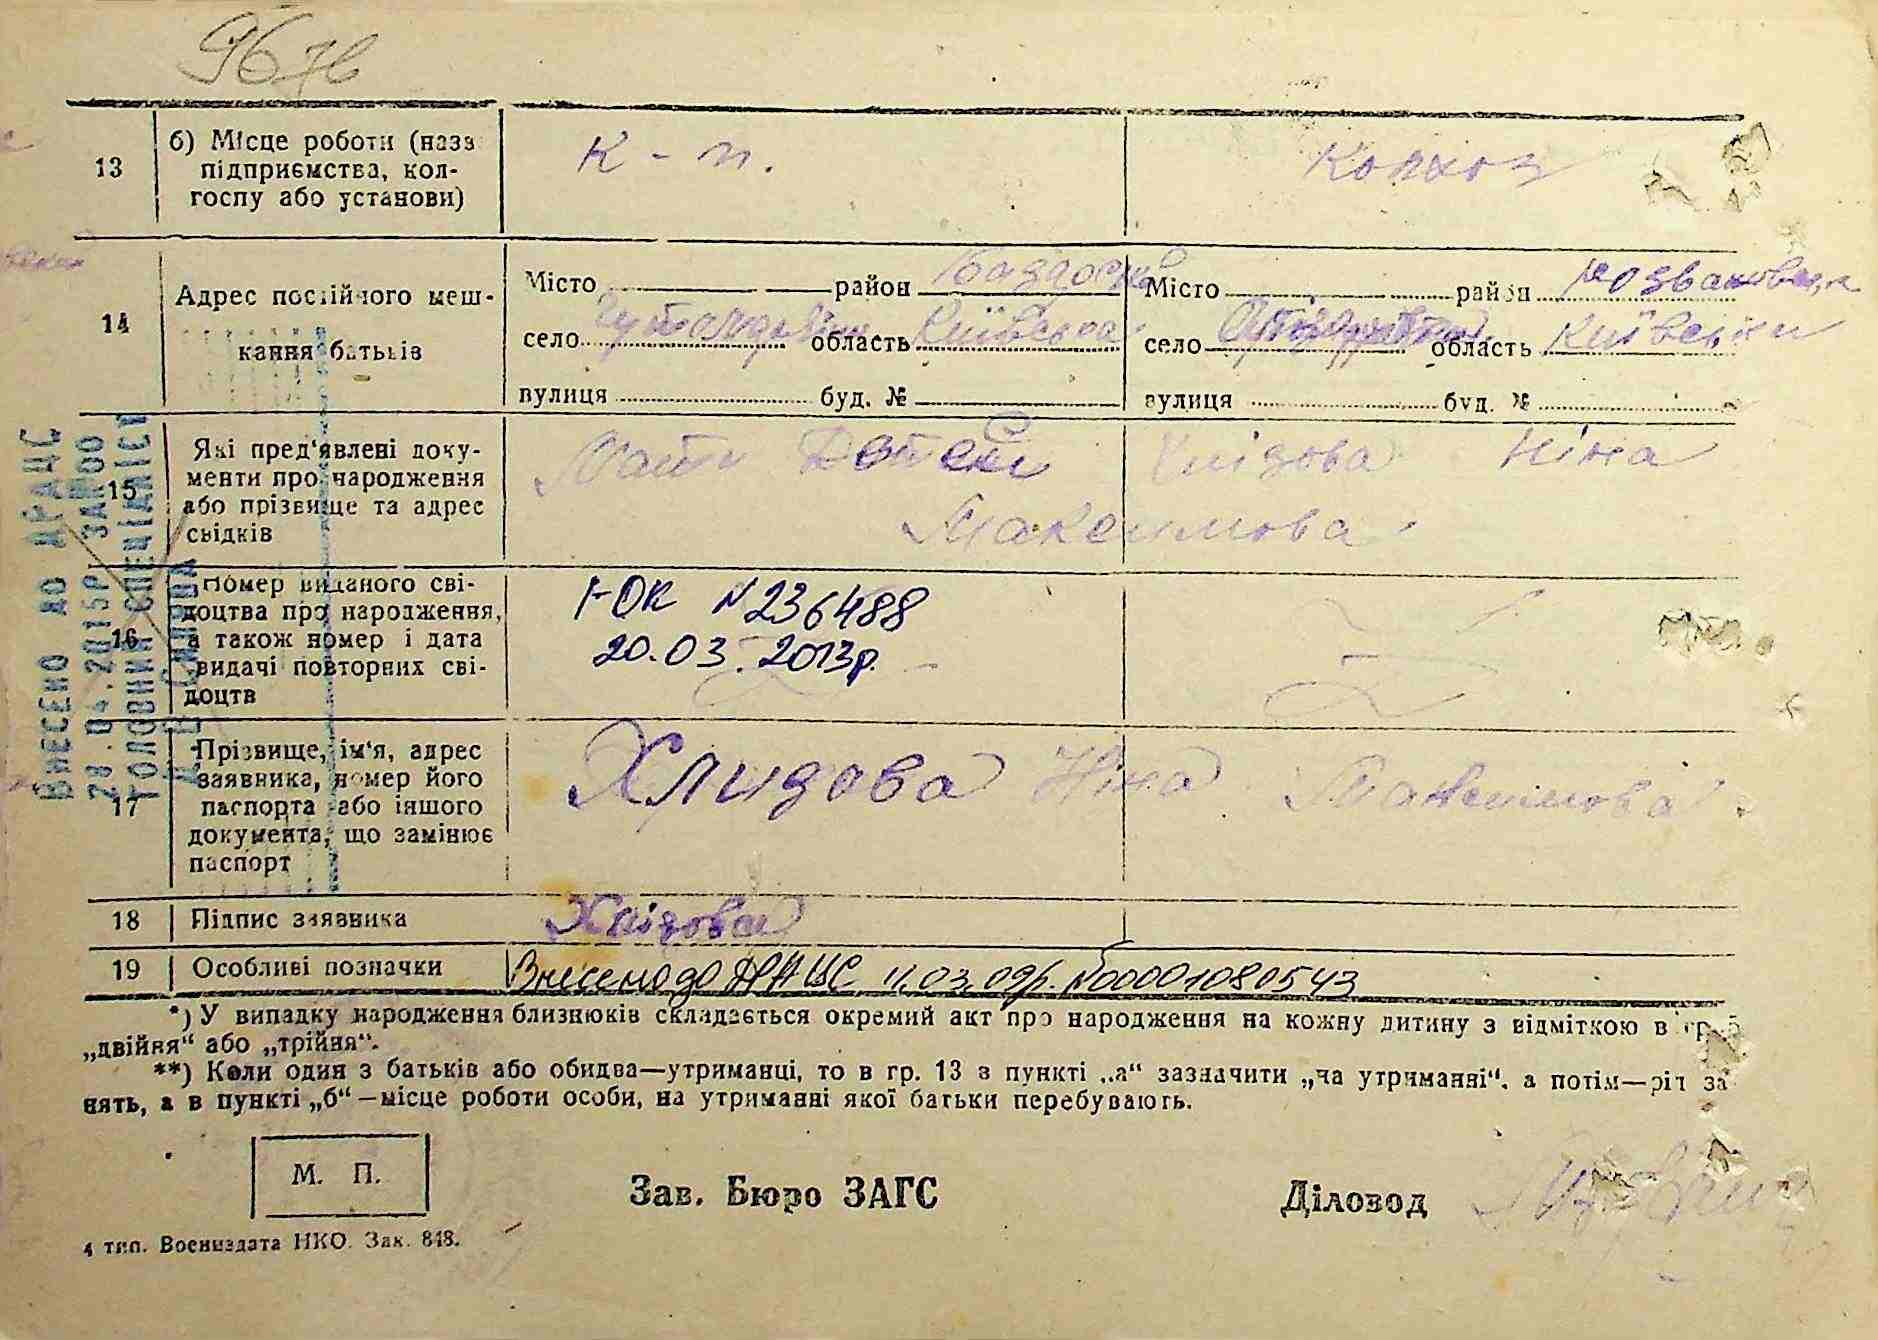 13
б) Місце роботи (назв
підприємства, кол-
госпу або установи)
к - п.
Колхоз
14
Адрес постійного меш-
кання батьків
Місто район
село область Київська
вулиця буд. №
Місто район
село область Київськи
вулиця буд. №
15
Які пред'явлені доку-
менти про народження
або прізвище та адрес
свідків
Хлізова Ніна
Максимова
16
Номер виданого сві-
доцтва про народження,
а також номер і дата
видачі повторних сві-
доцтв
І-ОК N 236488
20.03.2013р.
17
Прізвище, ім'я, адрес
заявника, номер його
паспорта або іншого
документа, що замінює
паспорт
Хлидова Ніна Максимова
18
Підпис заявника
Хлізова
19
Особливі позначки
Внесено до ДРАЦС 11.03.09р. №00001080543
*) У випадку народження близнюків складається окремий акт про народження на кожну дитину з відміткою в гр. 5
„двійня“ або „трійня“.
**) Коли один з батьків або обидва—утриманці, то в гр. 13 в пункті „а“ зазначити „на утриманні“, а потім—рід за
нять, а в пункті „б“—місце роботи особи, на утриманні якої батьки перебувають.
М. П.
Зав. Бюро ЗАГС
Діловод
4 тип. Воениздата НКО. Зак. 848.
ВНЕСЕНО ДО ДРАЦС
28.04.2015Р ЗАМ00
ГОЛОВНИЙ СПЕЦІАЛІСТ